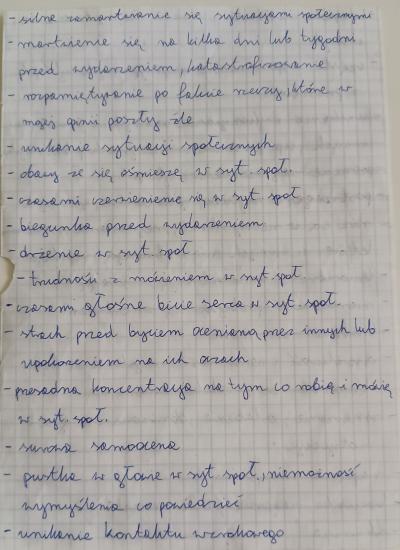 - silne zamartwianie się sytuacjami społecznymi
- martwienie się na kilka dni lub tygodni
przed wydarzeniem, katastrofizowanie
- rozpamiętywanie po fakcie rzeczy, które w
mojej opinii poszły źle
- unikanie sytuacji społecznych
- obawy że się ośmieszę w syt. społ.
- czasami czerwienienie się w syt. społ
- biegunka przed wydarzeniem
- drżenie w syt. społ
- trudności z mówieniem w syt. społ.
- czasami głośne bicie serca w syt. społ.
- strach przed byciem ocenianą przez innych lub
upokorzeniem na ich oczach
- przesadna koncentracja na tym co robię i mówię
w syt. społ.
- surowa samoocena
- pustka w głowie w syt. społ., niemożność
wymyślenia co powiedzieć
- unikanie kontaktu wzrokowego